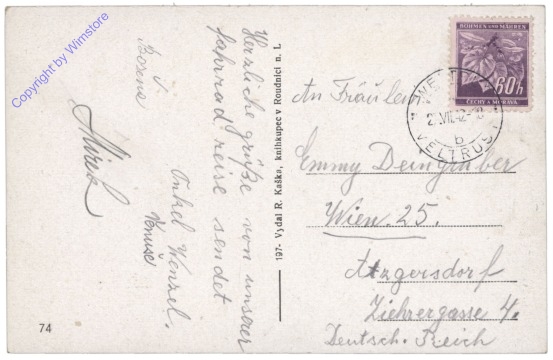 Copyright by Wimstore
Herzliche grüße von unserer
fahrrad reise sendet
Onkel Wenzel.
Venuše
Mirek
74
197- Vydal R. Kaška, knihkupec v Roudnici n. L
BÖHMEN UND MÄHREN
60h
ČECHY A MORAVA
VELTRUSY
b
An Fräulein
Emmy Deingruber
Wien. 25.
Atzgersdorf
Ziehrergasse 4.
Deutsch. Reich